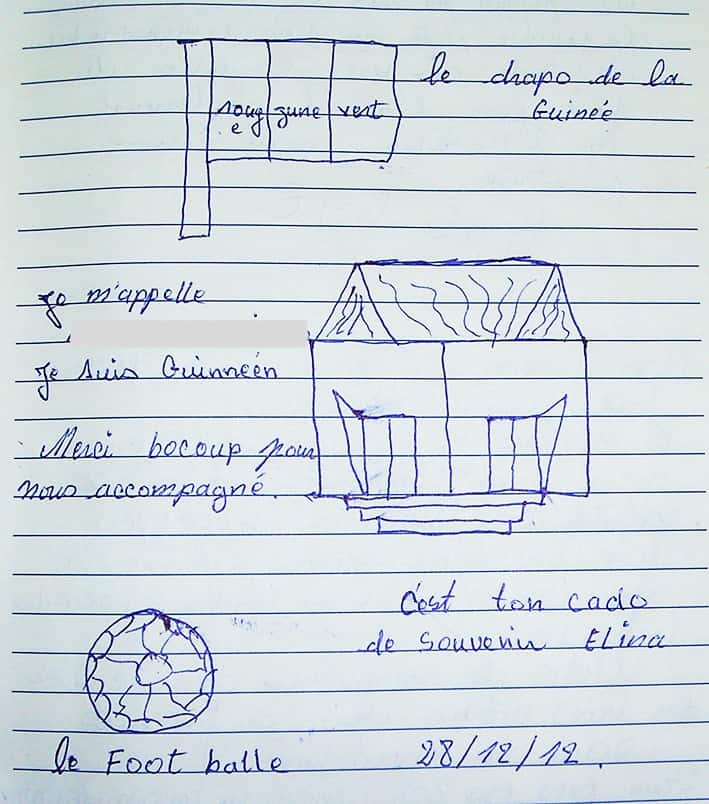 le drapo de la
Guineé
roug
e
zune
vert
Je m'appelle
Je suis Guinneén
Merci bocoup pour
nous accompagné.
C'est ton cado
de souvenir Elina
le Foot balle
28/12/12.